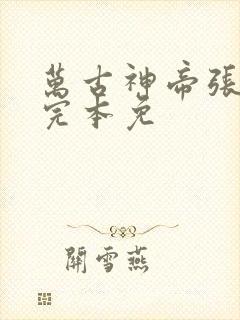 萬古神帝張
完本免
開雪燕